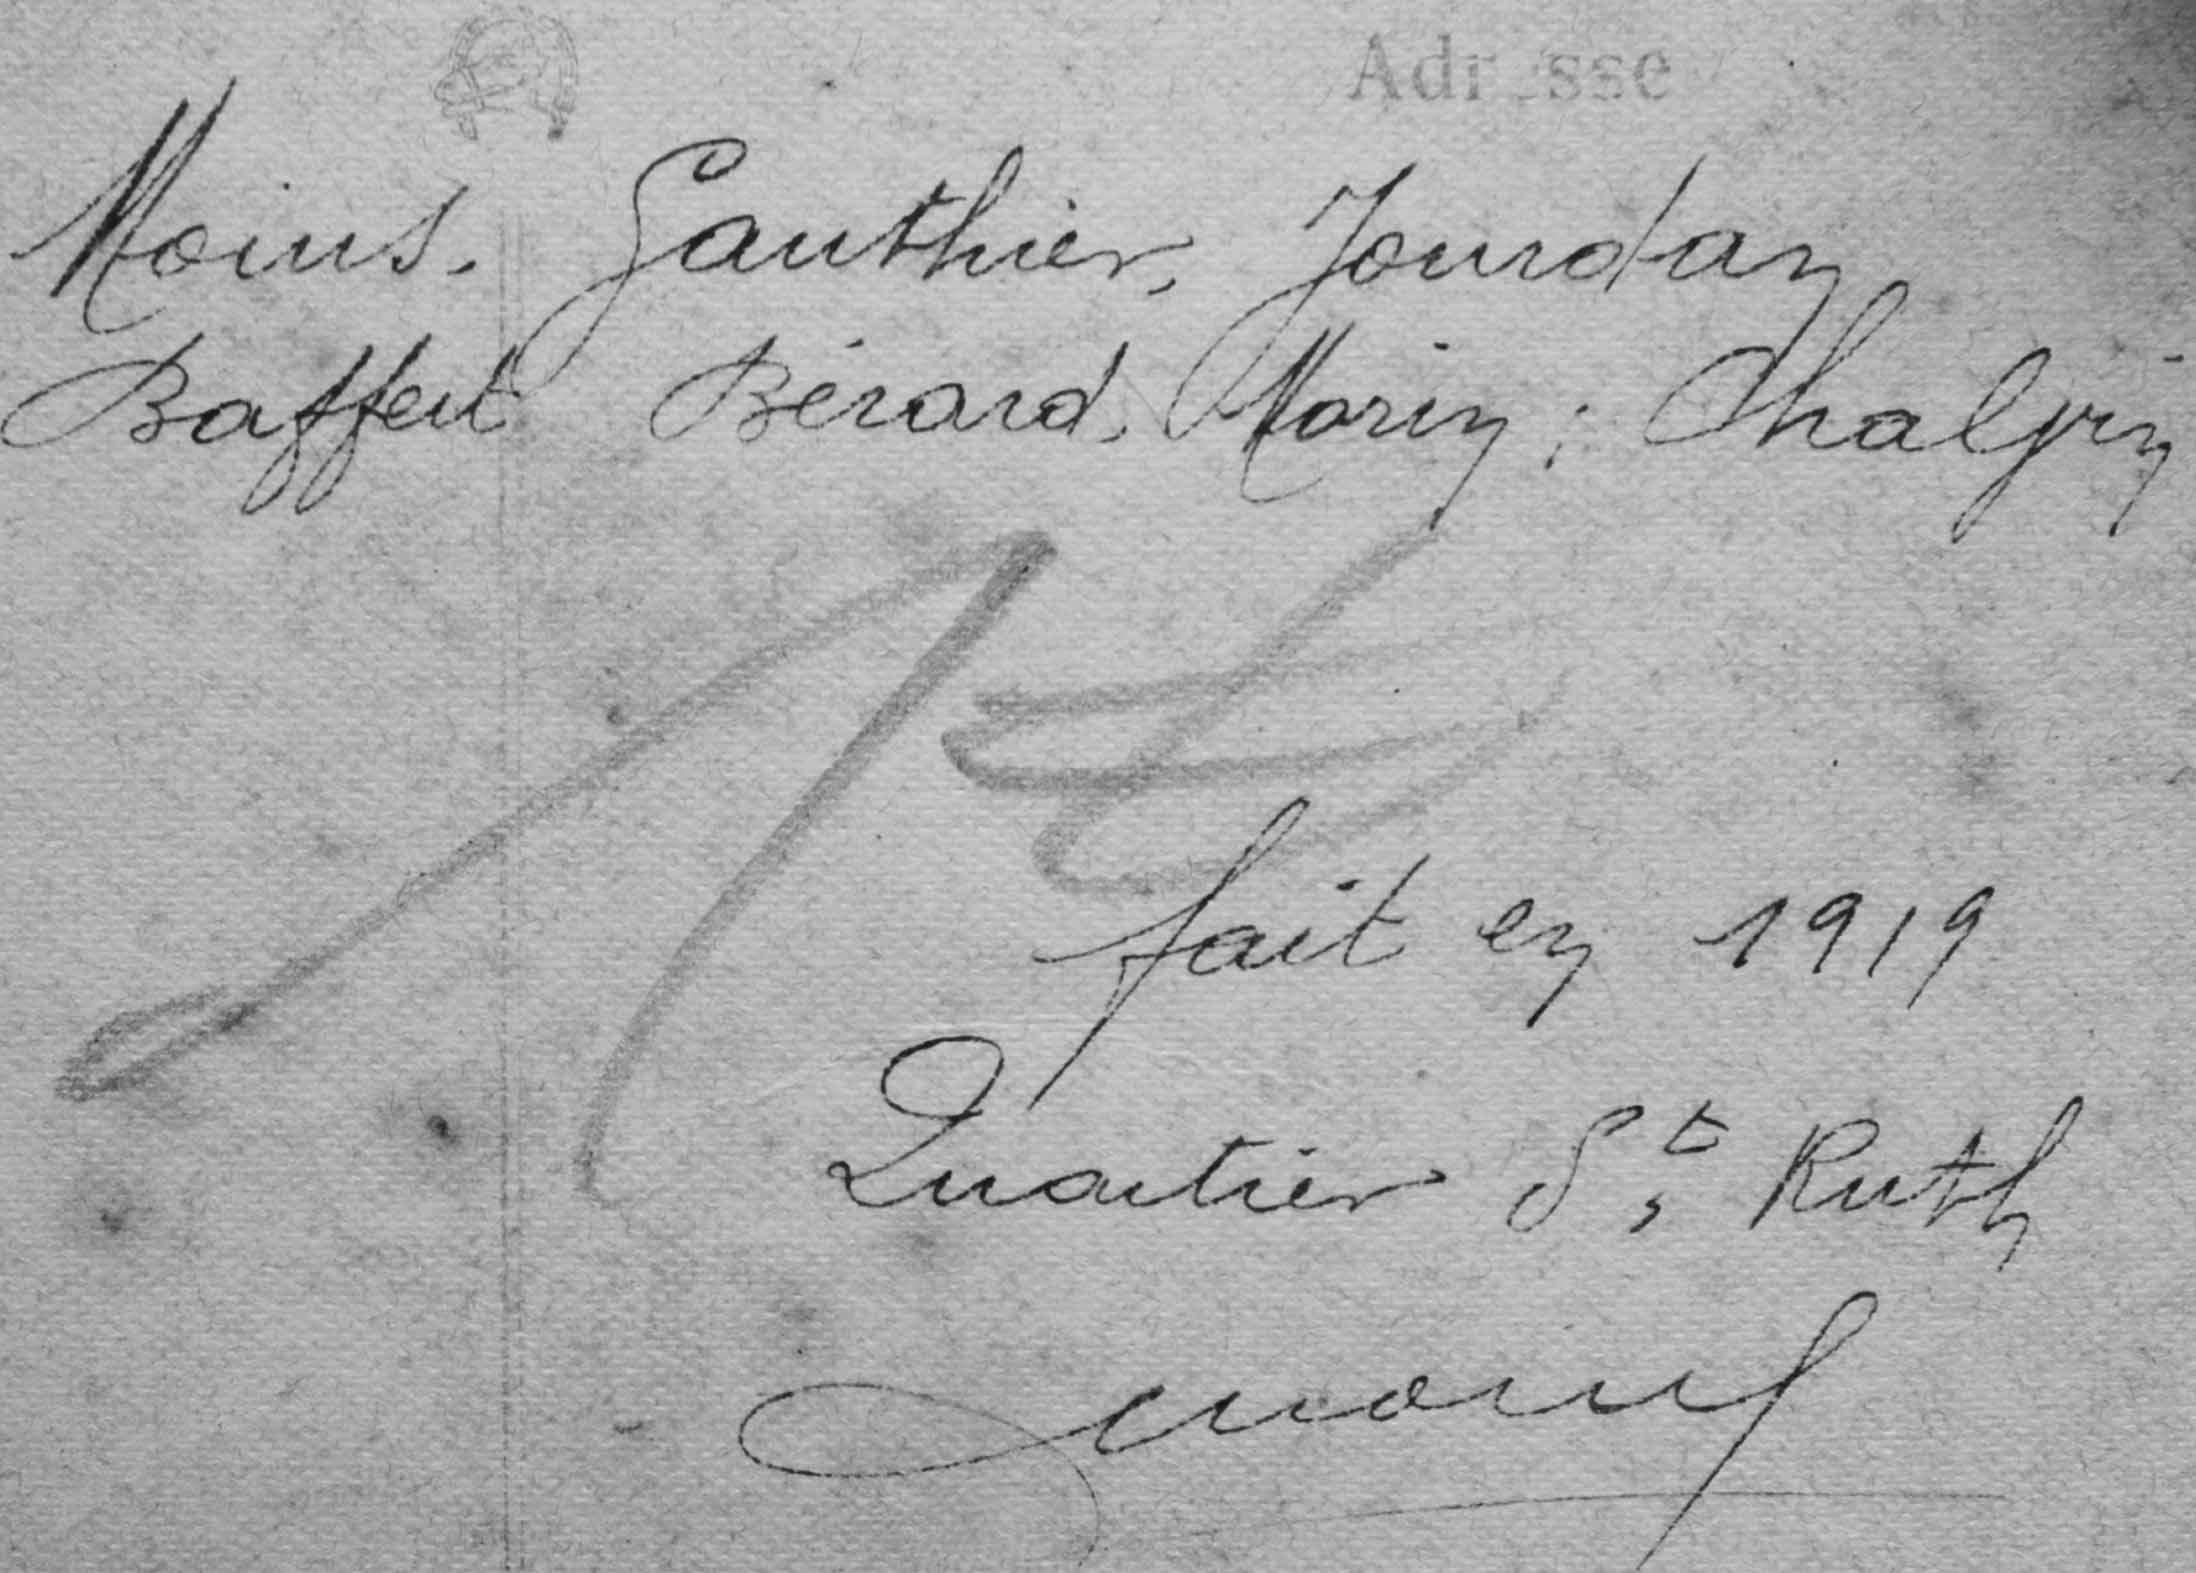 Adresse
Moins. Gauthier, Jourdan
Baffert Bérard. Morin; Chalpin
fait en 1919
Quartier St Ruth